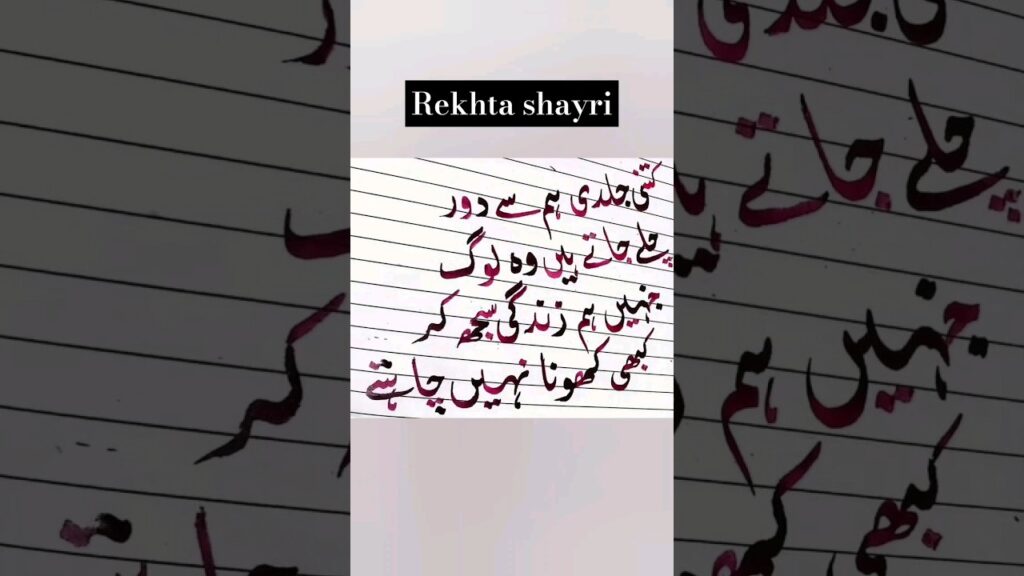 Rekhta shayri
کتنی جلدی ہم سے دور
چلے جاتے ہیں وہ لوگ
جنہیں ہم زندگی سمجھ کر
کبھی کھونا نہیں چاہتے